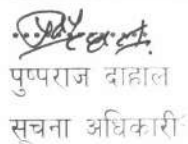 पुष्पराज दाहाल
सूचना अधिकारी